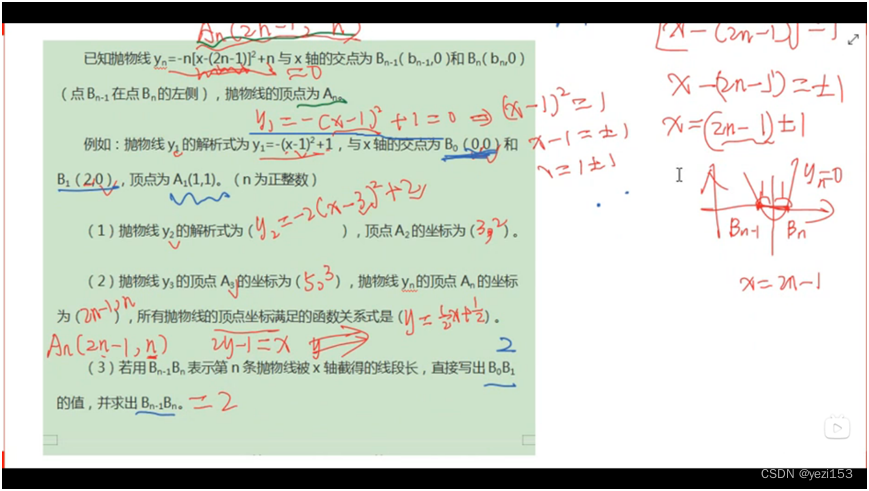 An(2n-1, n)
已知抛物线 yn=-n[x-(2n-1)]²+n 与 x 轴的交点为 Bn-1( bn-1,0 )和 Bn( bn,0)
=0
(点 Bn-1 在点 Bn 的左侧),抛物线的顶点为 An。
y₁=-(x-1)²+1=0 ⇒ (x-1)²=1
例如:抛物线 y1 的解析式为 y1=-(x-1)²+1,与 x 轴的交点为 B0(0,0)和
x-1=±1
B1(2,0),顶点为 A1(1,1)。(n 为正整数)
x=1±1
y₂=-2(x-3)²+2
(1)抛物线 y2 的解析式为( ),顶点 A2 的坐标为(3,2)。
(2)抛物线 y3 的顶点 A3 的坐标为(5,3),抛物线 yn 的顶点 An 的坐标
为(2n-1,n),所有抛物线的顶点坐标满足的函数关系式是(y=½x+½)。
An(2n-1,n) 2y-1=x y
2
(3)若用 Bn-1Bn 表示第 n 条抛物线被 x 轴截得的线段长,直接写出 B0B1
的值,并求出 Bn-1Bn。=2
x-(2n-1)=±1
x=(2n-1)±1
yn=0
Bn-1 Bn
x=2n-1
CSDN @yezi153